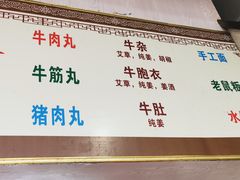 牛肉丸 牛杂 手工面
艾草，纯姜，胡椒
牛筋丸 牛胞衣 老鼠板
艾草，纯姜，姜酒
猪肉丸 牛肚 水
纯姜